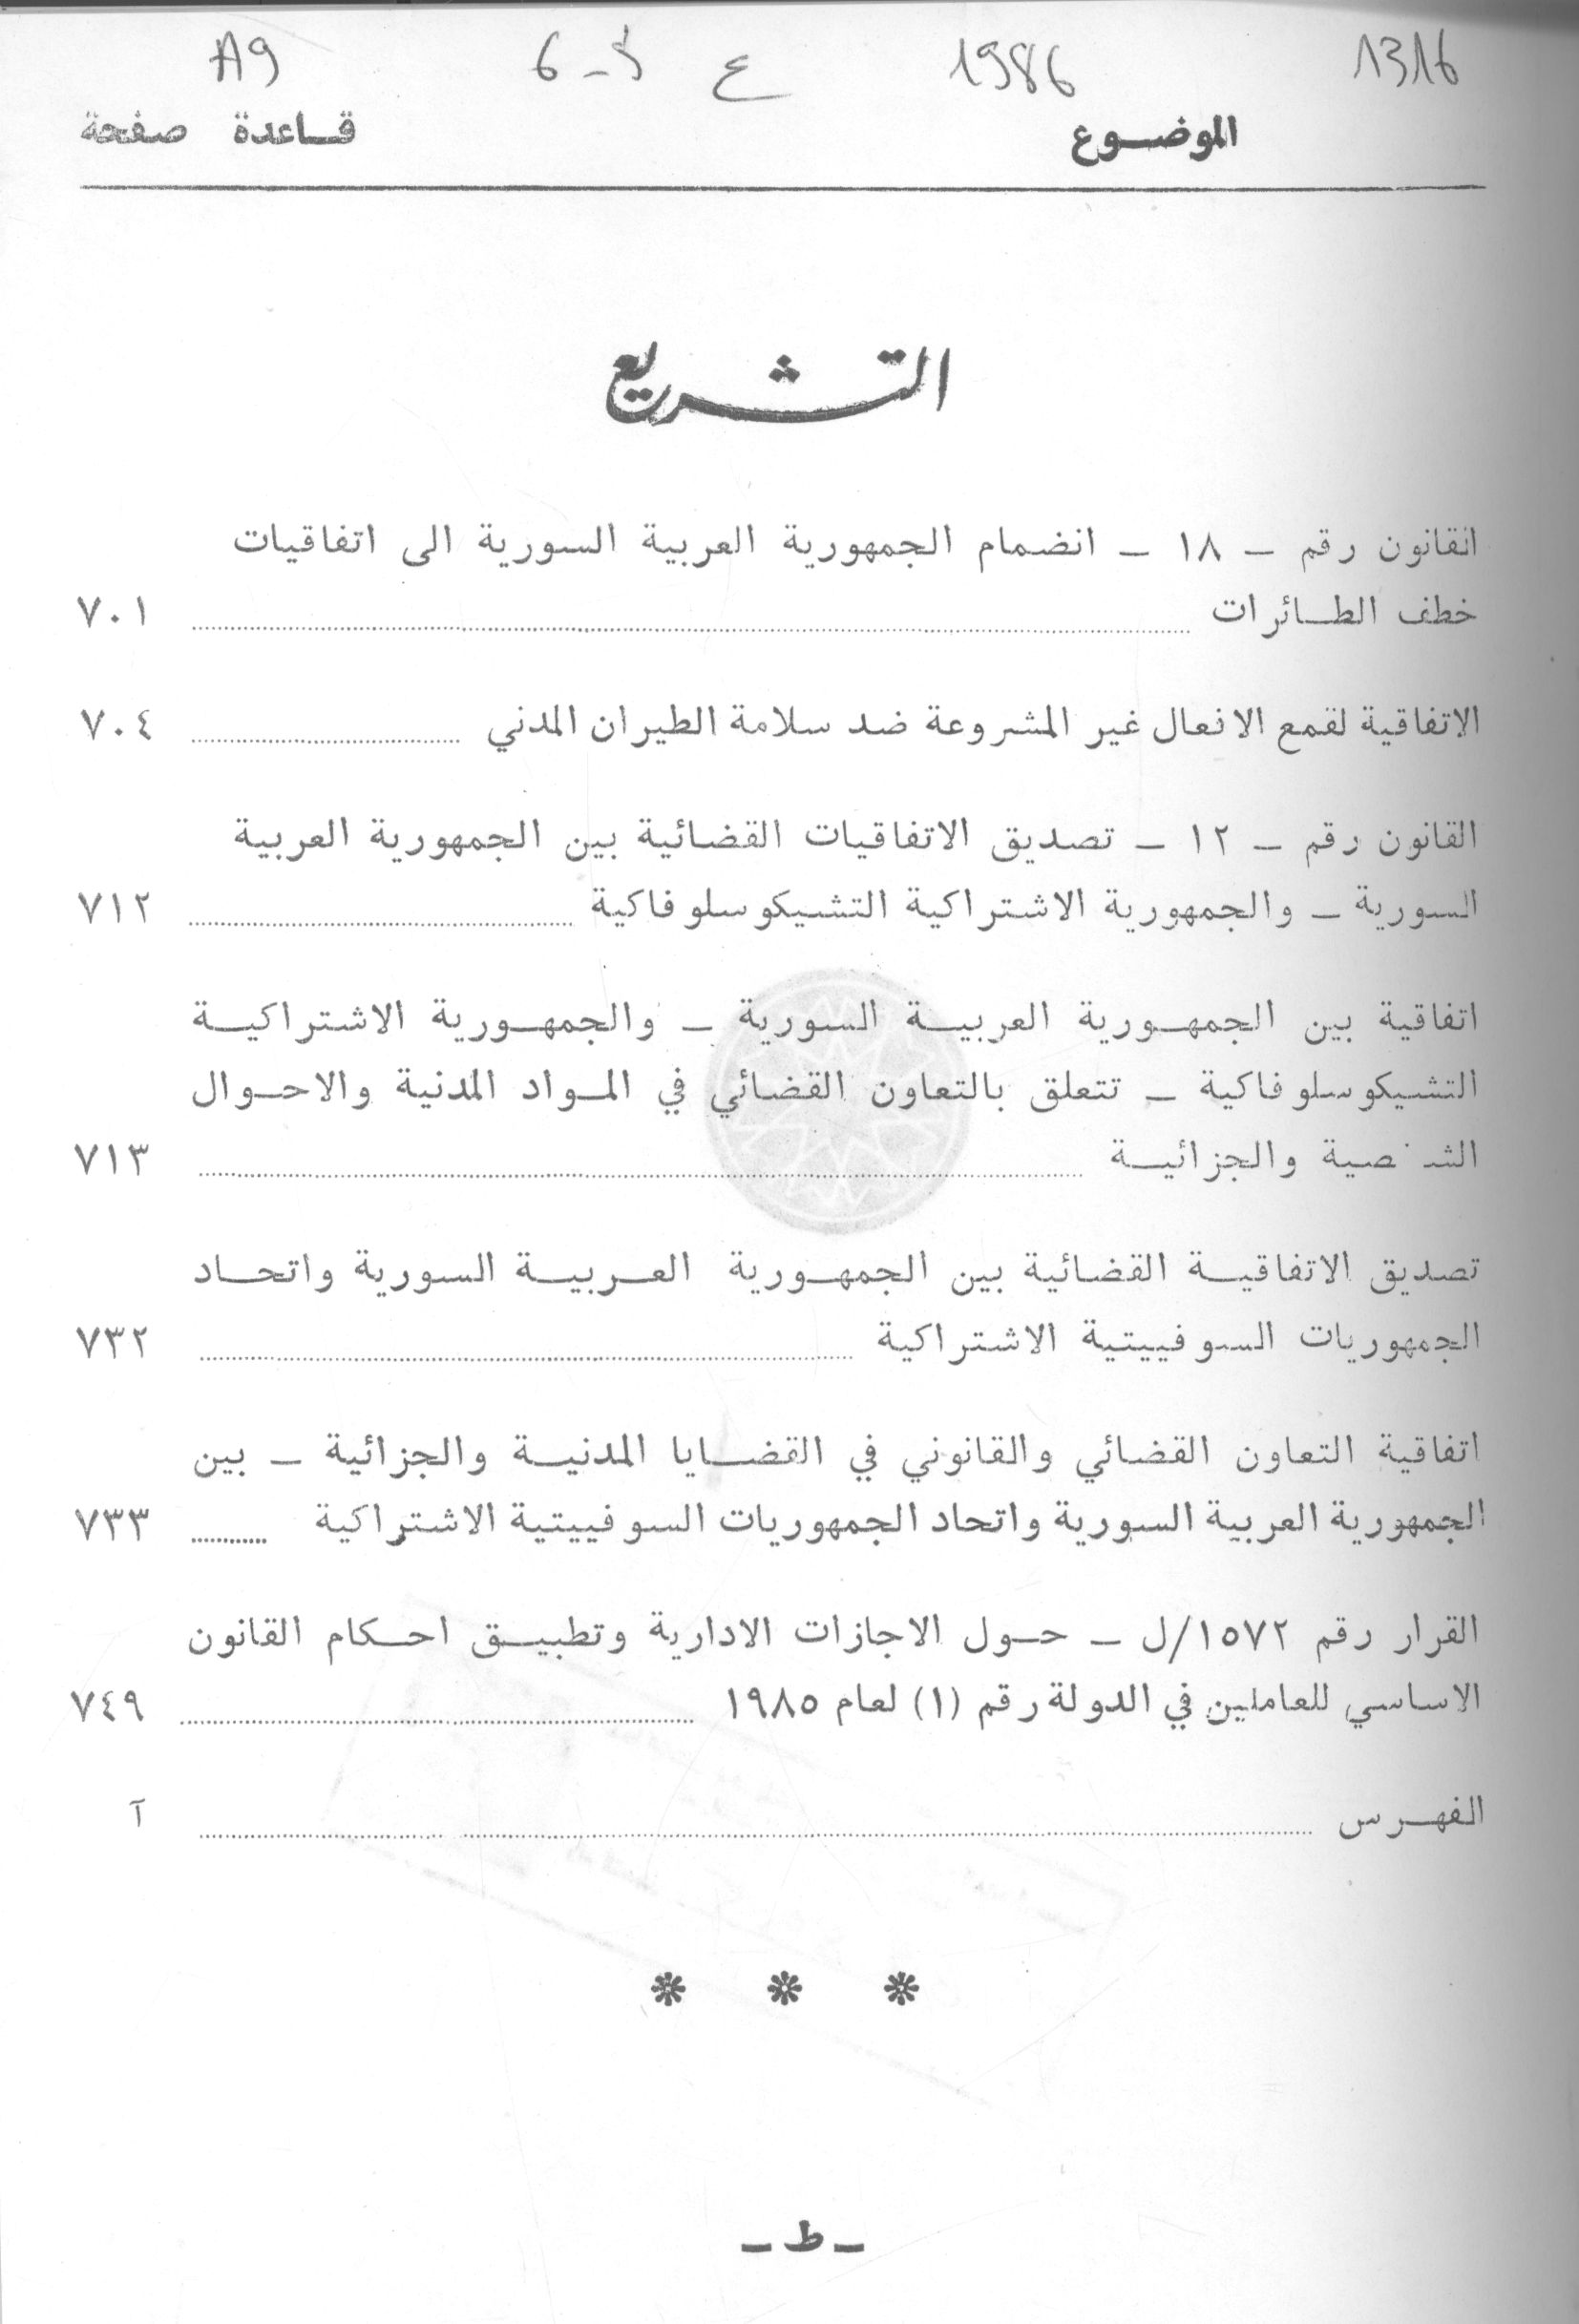 1316 1986 ع 5-6 A9
الموضوع قاعدة صفحة
التشريع
القانون رقم – ١٨ – انضمام الجمهورية العربية السورية الى اتفاقيات
خطف الطائرات ........ ٧٠١
الاتفاقية لقمع الافعال غير المشروعة ضد سلامة الطيران المدني ........ ٧٠٤
القانون رقم – ١٢ – تصديق الاتفاقيات القضائية بين الجمهورية العربية
السورية – والجمهورية الاشتراكية التشيكوسلوفاكية ........ ٧١٢
اتفاقية بين الجمهورية العربية السورية – والجمهورية الاشتراكية
التشيكوسلوفاكية – تتعلق بالتعاون القضائي في المواد المدنية والاحوال
الشخصية والجزائية ........ ٧١٣
تصديق الاتفاقية القضائية بين الجمهورية العربية السورية واتحاد
الجمهوريات السوفييتية الاشتراكية ........ ٧٣٢
اتفاقية التعاون القضائي والقانوني في القضايا المدنية والجزائية – بين
الجمهورية العربية السورية واتحاد الجمهوريات السوفييتية الاشتراكية ........ ٧٣٣
القرار رقم ١٥٧٢/ل – حول الاجازات الادارية وتطبيق احكام القانون
الاساسي للعاملين في الدولة رقم (١) لعام ١٩٨٥ ........ ٧٤٩
الفهرس ........ آ
* * *
– ط –